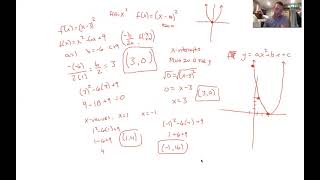 f(x) = (x-3)²
f(x) = x² - 6x + 9
a=1 b=-6 c=9
-(-6)/2(1) = 6/2 = 3
(3)² - 6(3) + 9
9 - 18 + 9 = 0
(-b/2a, f( ))
(3,0)
f(x) = (x-4)²
x-intercepts
Plug 0 in for y
√0 = √(x-3)²
0 = x-3
x = 3
(3,0)
x-values: x=1 x=-1
1² - 6(1) + 9
1 - 6 + 9
4
(1,4)
(-1)² - 6(-1) + 9
1 + 6 + 9
(-1,16)
y = ax² + bx + c